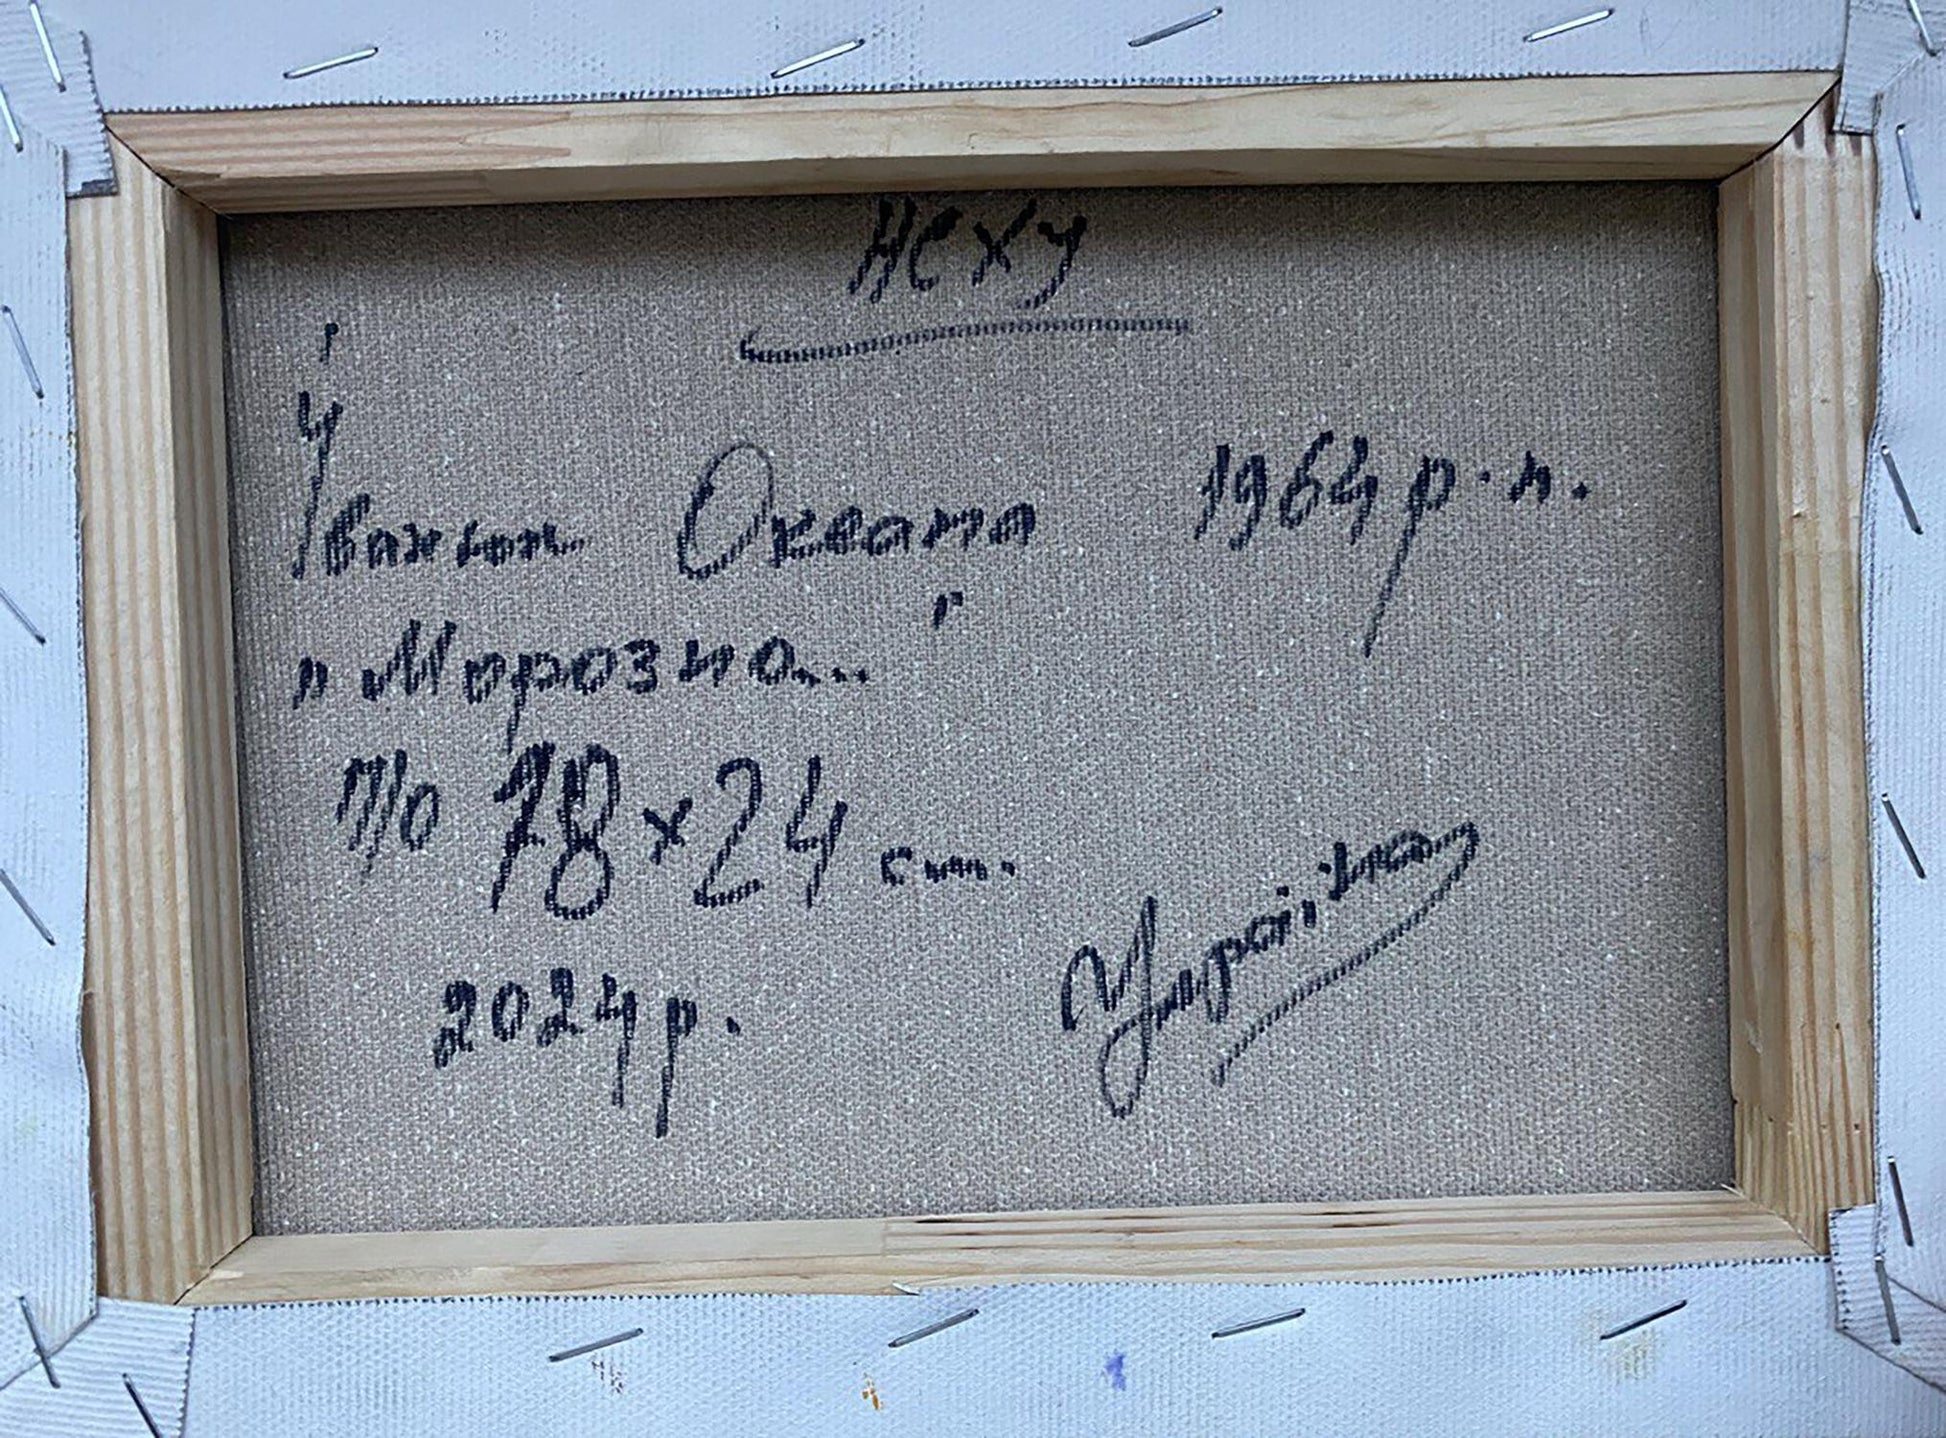 НСХУ
Іважин Оксана 1964 р.н.
"Морозно..."
п/о 18×24 см.
2024 р.
Україна